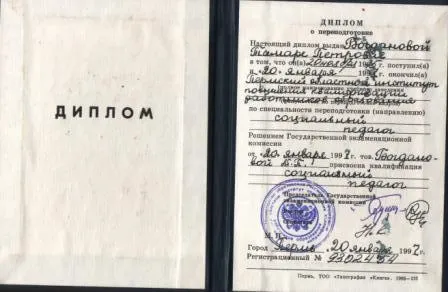 ДИПЛОМ
ДИПЛОМ
о переподготовке
Настоящий диплом выдан Богдановой
Тамаре Петровне
в том, что он(а) 20 ноября поступил(а)
и 20 января 199 г. окончил(а)
Пермский областной институт
повышения квалификации
работников образования
по специальности переподготовки (направлению)
социальный
педагог
Решением Государственной экзаменационной
комиссии
от 20 января 1997 г. тов. Богдано-
вой Т.П. присвоена квалификация
социальный
педагог
Председатель Государственной
экзаменационной комиссии
М. П.
Город Пермь, 20 января 1997 г.
Регистрационный №
Пермь, ТОО «Типография «Книга».